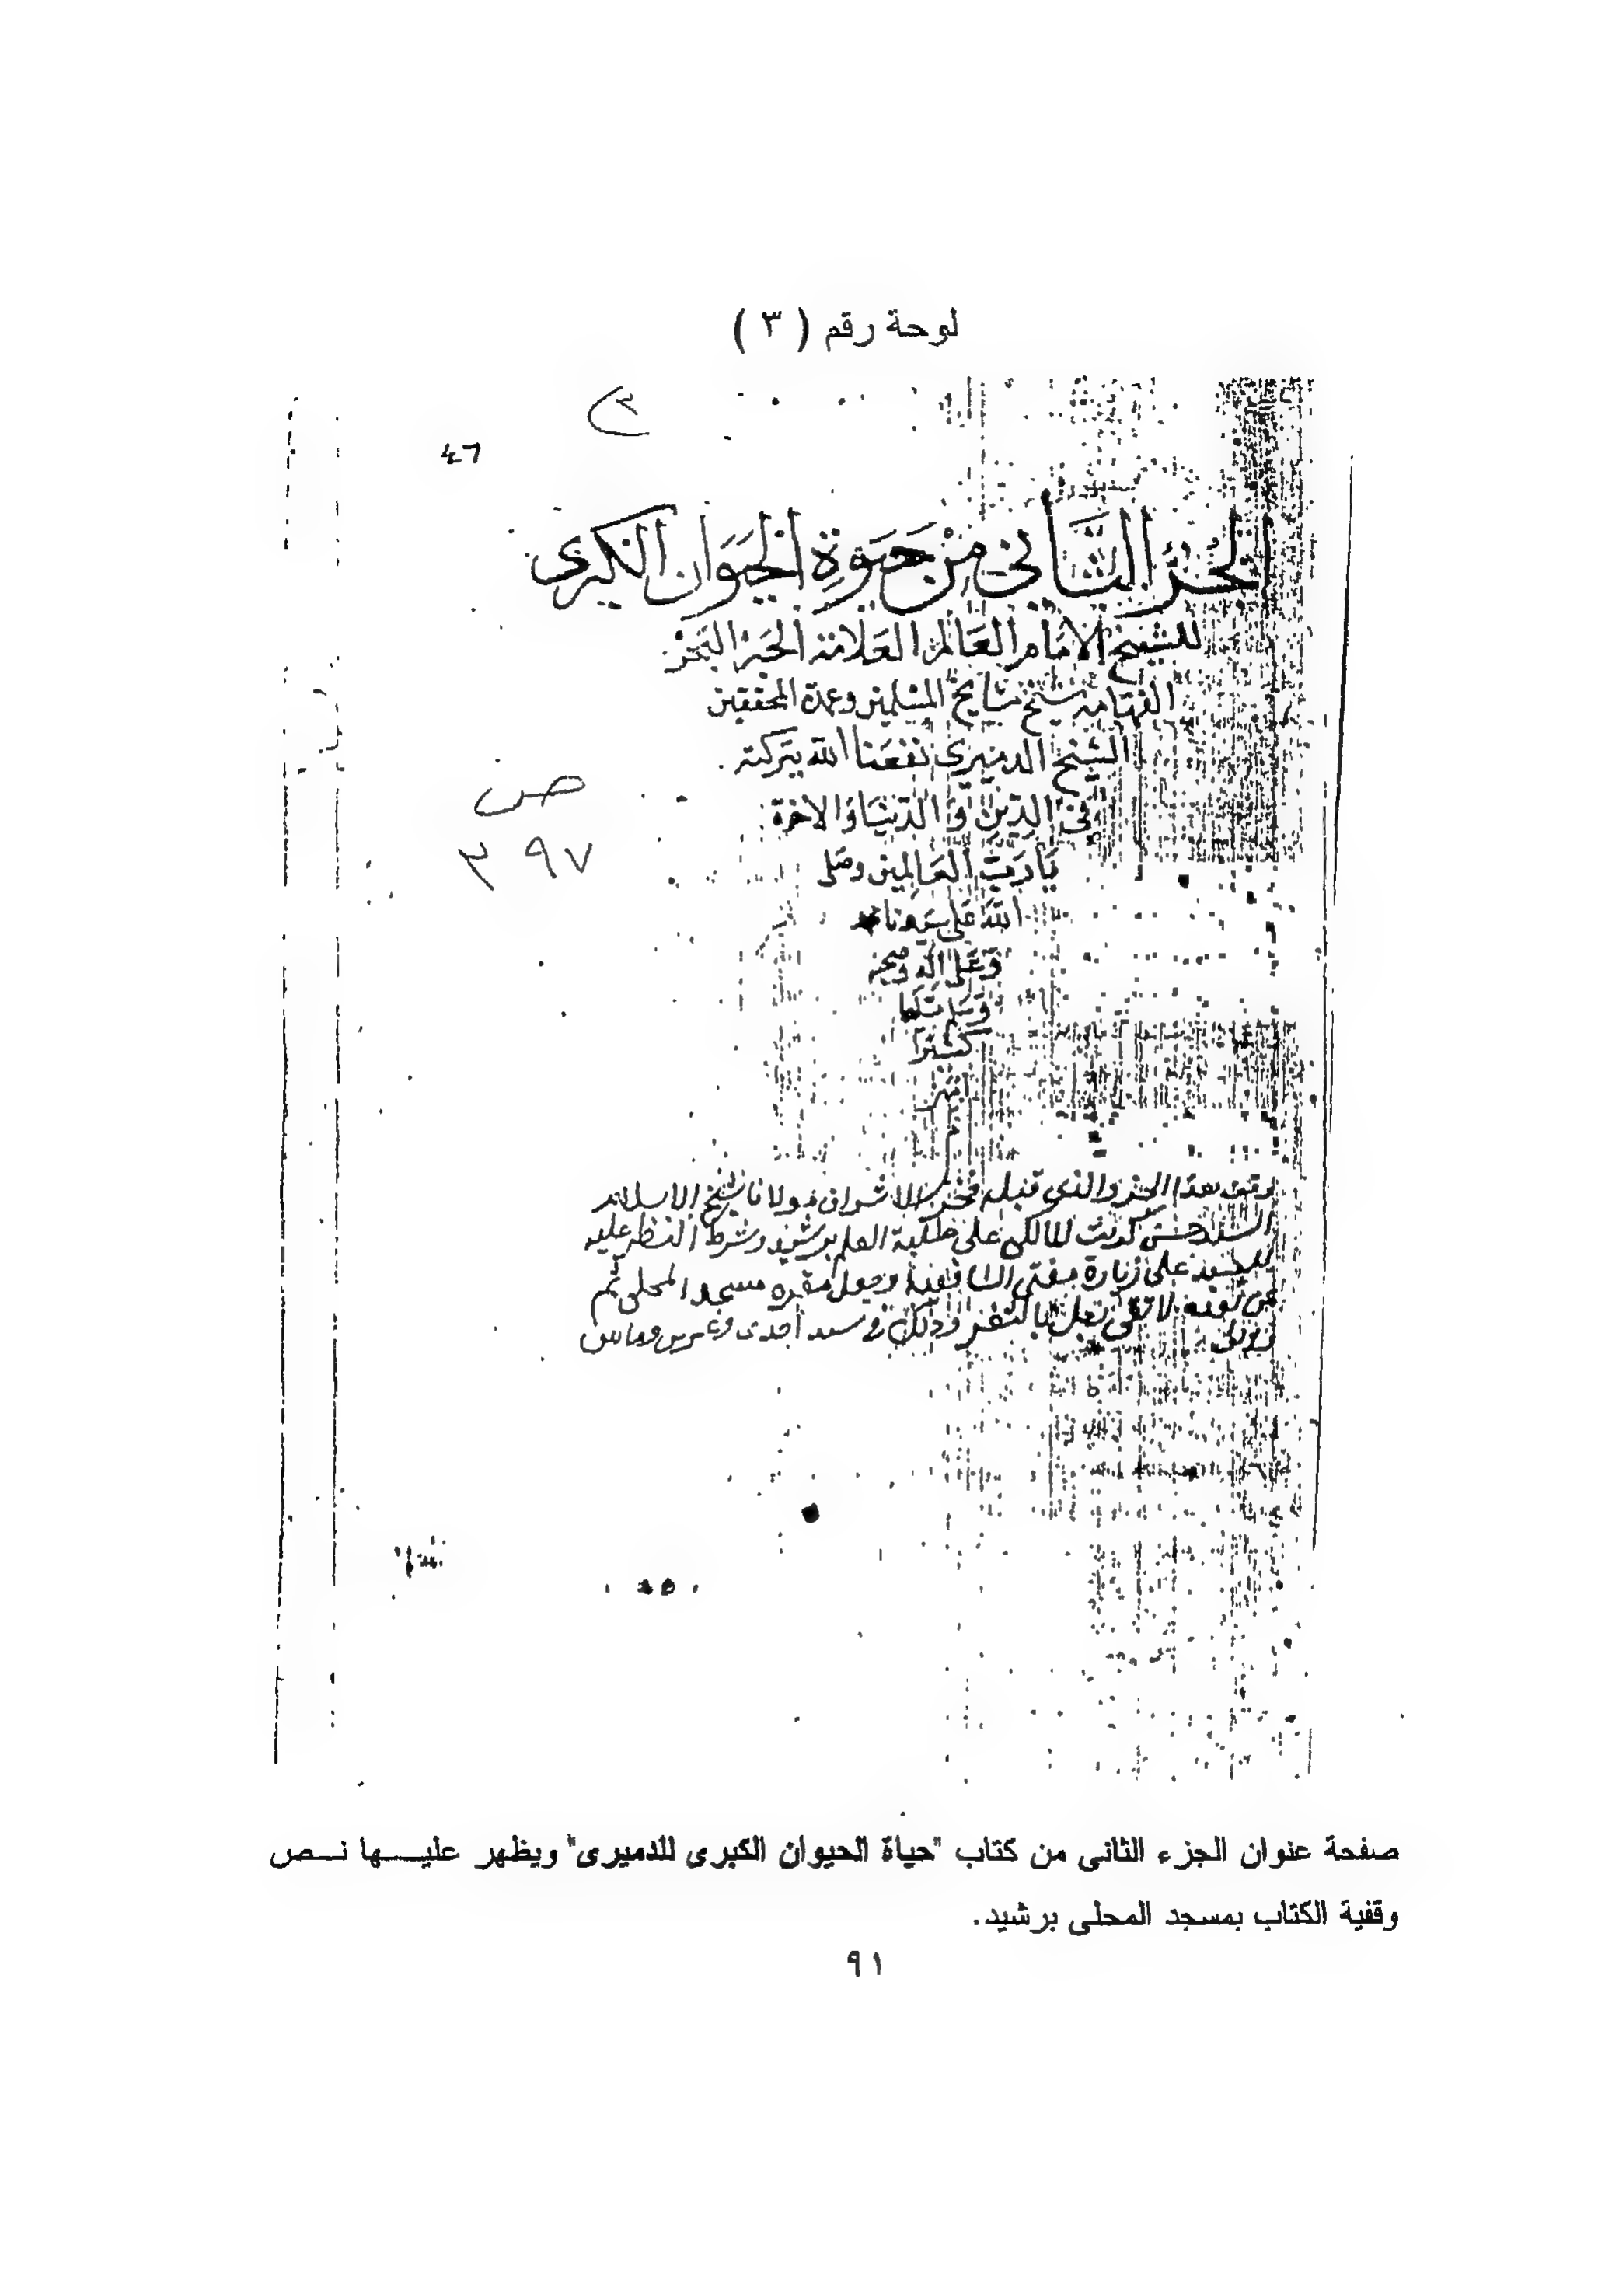 لوحة رقم ( ٣ )
٣
٤٦
الجُزءُ الثَّانى مِنْ حَيَوةِ الحَيَوَان الكبرى
للشيخ الامَام العَالم العَلامة الحَبر البَحْر
الفهامة شيخ مشايخ المسلمين وعمدة المحققين
الشيخ الدميرى نفعَنا الله ببَركته
فى الدِّين وَالدّنيَا وَالاخرة
يَا رَبّ العَالمين وصَلى
الله عَلى سَيدنا محمد
وَعَلى اله وصحبه
وَسَلم تسلما
كثيرًا
امين
ص
٣٩٧
وقف هذا الجزء والذى قبله فخر الاشراف مولانا شيخ الاسلام
السيد حسن كريت المالكى على طلبة العلم برشيد وشرط النظر عليه
للسيد على زيارة مفتى الشافعية وجعل مقره مسجد المحلى ثم
من بعده لاتقى بالثغر وذلك فى سنة احدى وعشرين ومايتين
صفحة عنوان الجزء الثانى من كتاب "حياة الحيوان الكبرى للدميرى" ويظهر عليها نص
وقفية الكتاب بمسجد المحلى برشيد.
٩١